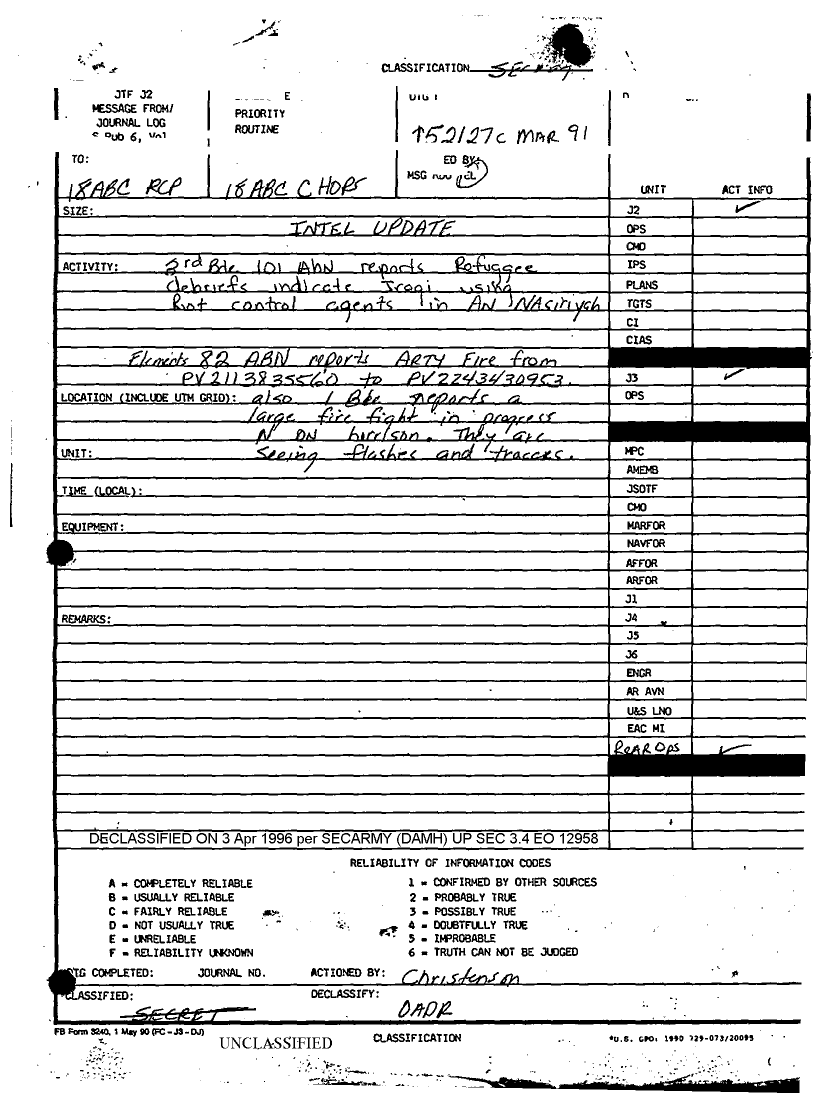 CLASSIFICATION
JTF J2
MESSAGE FROM/
JOURNAL LOG
E
PRIORITY
ROUTINE
152127C MAR 91
TO:
18 ABC RCP
18 ABC C HOPS
MSG
UNIT ACT INFO
SIZE:
INTEL UPDATE
ACTIVITY: 3rd Bde 101 Abn reports Refuggee
debriefs indicate Iraqi using
Riot control agents in AN NAsiriyah
Elements 82 ABN reports ARTY Fire from
PV2113835560 to PV2243430953.
LOCATION (INCLUDE UTM GRID): also 1 Bde reports a
large fire fight in progress
N ON horrison. They are
UNIT: Seeing flashes and tracers.
TIME (LOCAL):
EQUIPMENT:
REMARKS:
J2 ✓
OPS
CMO
IPS
PLANS
TGTS
CI
CIAS
J3 ✓
OPS
MPC
AMEMB
JSOTF
CMO
MARFOR
NAVFOR
AFFOR
ARFOR
J1
J4
J5
J6
ENGR
AR AVN
U&S LNO
EAC MI
ReAR OpS ✓
DECLASSIFIED ON 3 Apr 1996 per SECARMY (DAMH) UP SEC 3.4 EO 12958
RELIABILITY OF INFORMATION CODES
A = COMPLETELY RELIABLE 1 = CONFIRMED BY OTHER SOURCES
B = USUALLY RELIABLE 2 = PROBABLY TRUE
C = FAIRLY RELIABLE 3 = POSSIBLY TRUE
D = NOT USUALLY TRUE 4 = DOUBTFULLY TRUE
E = UNRELIABLE 5 = IMPROBABLE
F = RELIABILITY UNKNOWN 6 = TRUTH CAN NOT BE JUDGED
DTG COMPLETED: JOURNAL NO. ACTIONED BY: Christenson
CLASSIFIED: SECRET DECLASSIFY: OADR
FB Form 3240, 1 May 90 (FC-J3-DJ)
UNCLASSIFIED CLASSIFICATION *U.S. GPO: 1990 729-073/20095